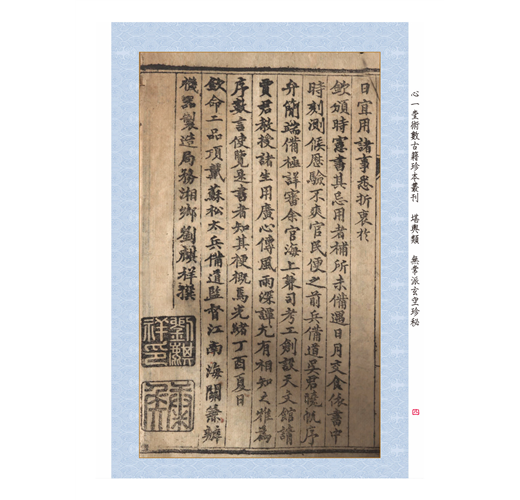 日宜用諸事悉折衷於
欽頒時憲書其忌用者補所未備遇日月交食依書中
時刻測候歷驗不爽官民便之前兵備道吳君曉帆序
弁簡端備極詳審余官海上暮司考工創設天文館請
賈君教授諸生用廣心傳風雨深譚尤有相知之雅為
序數言使覽是書者知其梗概焉光緒丁酉夏日
欽命二品頂戴蘇松太兵備道監督江南海關兼辦
機器製造局務湘鄉劉麒祥撰
劉麒
祥印
心一堂術數古籍珍本叢刊 堪輿類 無常派玄空珍秘
四